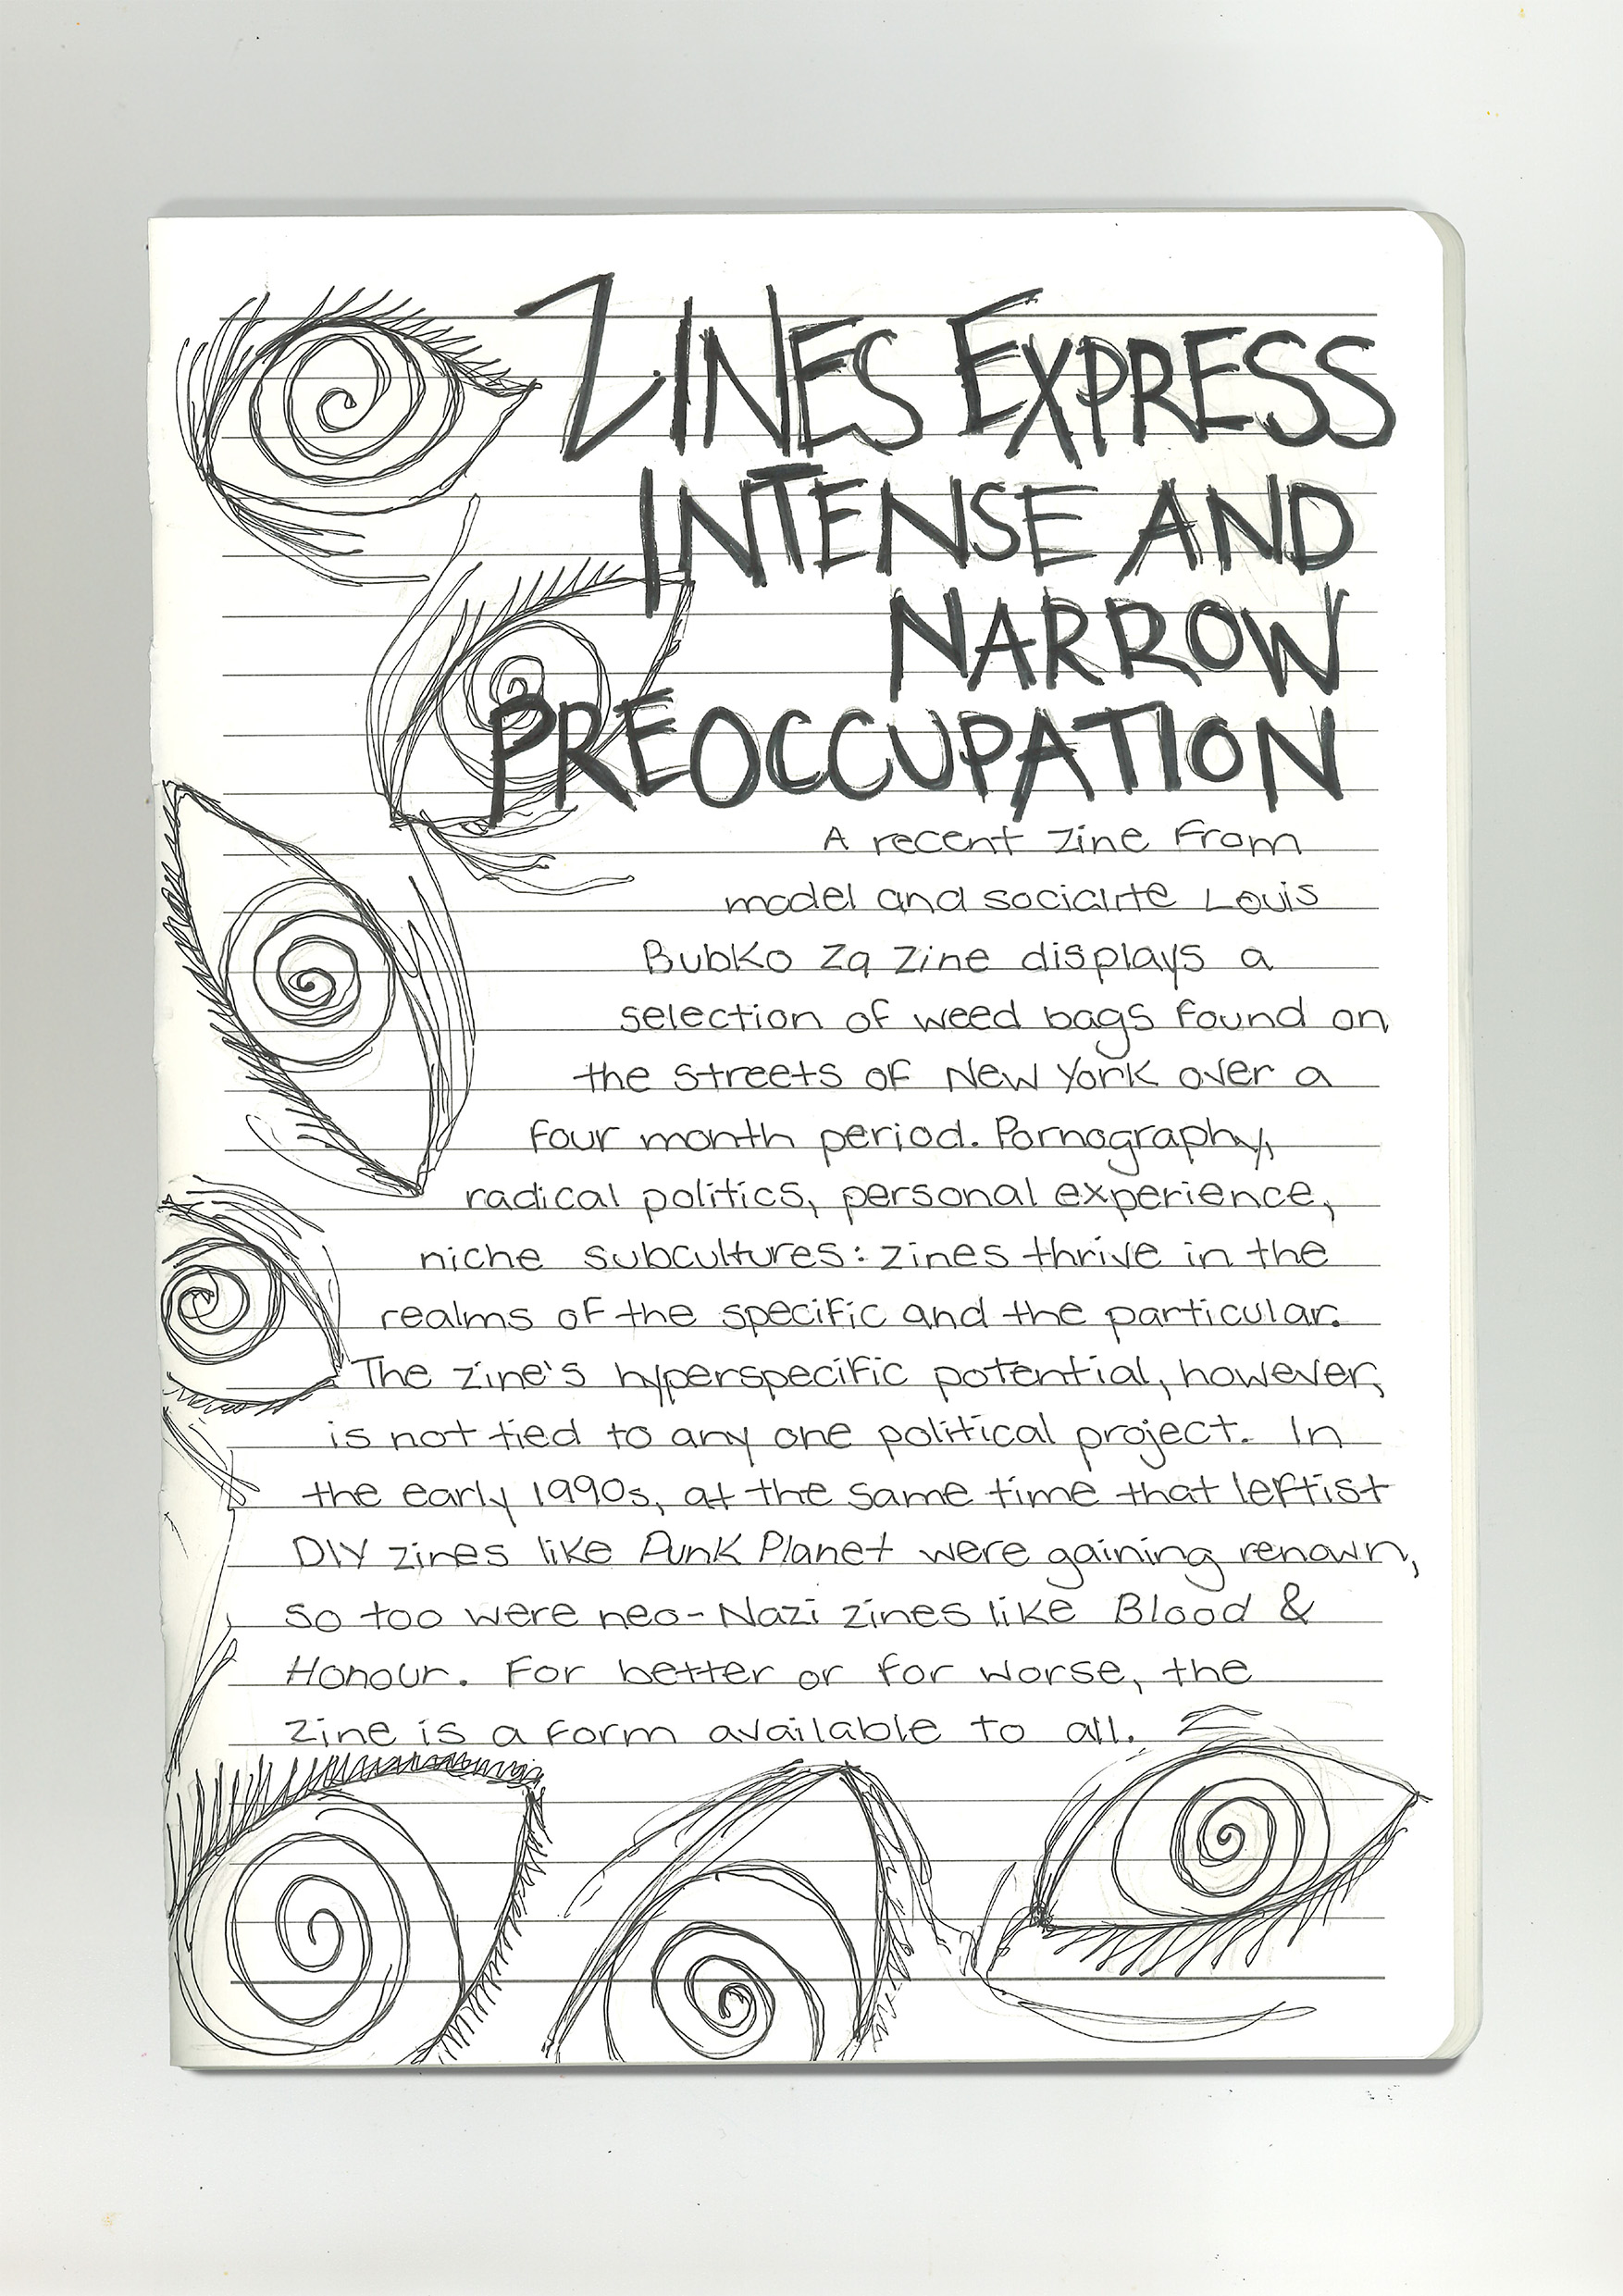 ZINES EXPRESS
INTENSE AND
NARROW
PREOCCUPATION
A recent zine from
model and socialite Louis
Bubko Za Zine displays a
selection of weed bags found on
the streets of New York over a
four month period. Pornography,
radical politics, personal experience,
niche subcultures: zines thrive in the
realms of the specific and the particular.
The zine's hyperspecific potential, however,
is not tied to any one political project. In
the early 1990s, at the same time that leftist
DIY zines like Punk Planet were gaining renown,
so too were neo-Nazi zines like Blood &
Honour. For better or for worse, the
zine is a form available to all.